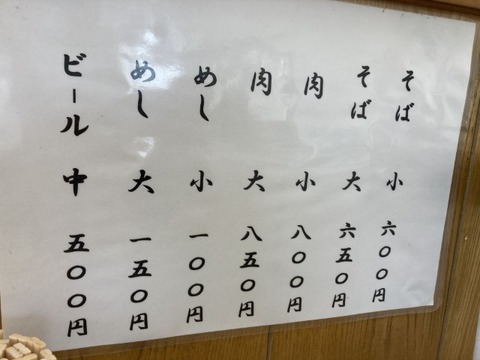 そば 小 六〇〇円
そば 大 六五〇円
肉 小 八〇〇円
肉 大 八五〇円
めし 小 一〇〇円
めし 大 一五〇円
ビール 中 五〇〇円